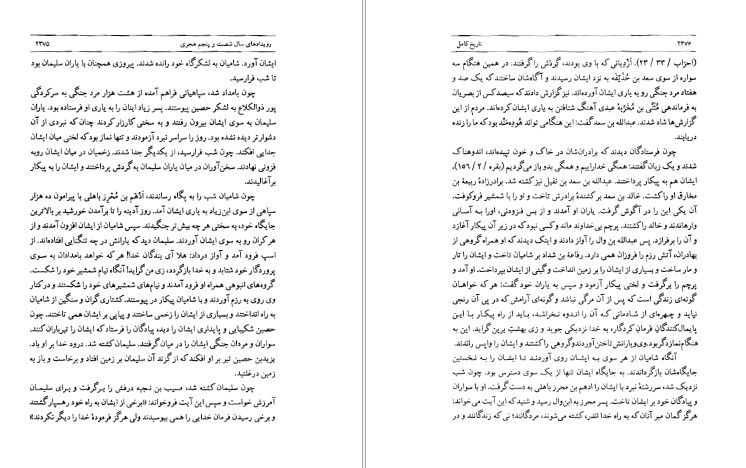 رویدادهای سال شصت و پنجم هجری ۲۳۷۵
ایشان آورد. شامیان به لشکرگاه خود رانده شدند. پیروزی همچنان با یاران سلیمان بود
تا شب فرارسید.
چون بامداد شد، سپاهیانی فراهم آمده از هشت هزار مرد جنگی به سرکردگی
پور ذوالکلاع به لشکر حصین پیوستند. پسر زیاد اینان را به یاری او فرستاده بود. یاران
سلیمان به سوی ایشان بیرون رفتند و به سختی کارزار کردند چنان که نبردی از آن
دشوارتر دیده نشده بود. روز را سراسر نبرد آزمودند و تنها نماز بود که لختی میان ایشان
جدایی افکند. چون شب فرارسید، از یکدیگر جدا شدند. زخمیان در میان ایشان روبه
فزونی نهادند. سخن‌آوران در میان یاران سلیمان به گردش پرداختند و ایشان را به پیکار
برآغالیدند.
چون شامیان شب را به پگاه رساندند، اَدْهَم بن مُحْرِز باهلی با پیرامون ده هزار
سپاهی از سوی ابن‌زیاد به یاری ایشان آمد. روز آدینه را تا برآمدن خورشید بر بالاترین
جایگاه خود، به سختی هر چه بیش‌تر جنگیدند. سپس شامیان از ایشان افزون آمدند و از
هر کران رو به سوی ایشان آوردند. سلیمان دید که یارانش در چه تنگنایی افتاده‌اند. از
اسپ فرود آمد و آواز درداد: هلا آی بندگان خدا! هر که خواهد بامدادان به سوی
پروردگار خود شتابد و به خدا بازگردد، زی من گراید! آنگاه نیام شمشیر خود را شکست.
گروه‌های انبوهی همراه او فرود آمدند و نیام‌های شمشیرهای خود را شکستند و در کنار
وی روی به رزم آوردند و با شامیان پیکار در پیوستند. کشتارگران و سنگین از شامیان
به راه انداختند و بسیاری از ایشان را زخمی ساختند و پیاپی بر ایشان همی تاختند. چون
حصین شکیبایی و پایداری ایشان را دید، پیادگان را فرستاد که ایشان را تیرباران کنند.
سواران و مردان جنگی ایشان را در میان گرفتند. سلیمان کشته شد. درود خدا بر او باد.
یزیدبن حصین تیر بر او افکند که از گزند آن سلیمان بر زمین افتاد و برخاست و باز به
زمین درغلتید.
چون سلیمان کشته شد، مسیب بن نجبه درفش را برگرفت و برای سلیمان
آمرزش خواست و سپس این آیت فروخواند: «برخی از ایشان به راه خود رهسپار گشتند
و برخی رسیدن فرمان خدایی را همی بیوسیدند ولی هرگز فرمودهٔ خدا را دیگر نکردند»
۲۳۷۶ تاریخ کامل
(احزاب / ۳۳ / ۲۳). اَزْدیانی که با وی بودند، گردش را گرفتند. در همین هنگام سه
سواره از سوی سعد بن حُذَیْفَه به نزد ایشان رسیدند و آگاه‌شان ساختند که یک صد و
هفتاد مرد جنگی رو به یاری ایشان آورده‌اند. نیز گزارش دادند که سیصد کس از بصریان
به فرماندهی مُثَنّی بن مُخَرّبهٔ عبدی آهنگ شتافتن به یاری ایشان کرده‌اند. مردم از این
گزارش‌ها شاد شدند. عبدالله بن سعد گفت: این هنگامی تواند سودمند بود که ما را زنده
دریابند.
چون فرستادگان دیدند که برادران‌شان در خاک و خون تپیده‌اند، اندوهناک
شدند و یک زبان گفتند: همگی خداراییم و همگی بدو بازمی‌گردیم (بقره / ۲ / ۱۵۶).
ایشان هم به پیکار پرداختند. عبدالله بن سعد بن نفیل نیز کشته شد. برادرزادهٔ ربیعة بن
مخارق او را کشت. خالد بن سعد بر کشندهٔ برادرش تاخت و او را با شمشیر فروکوفت.
آن یکی این را در آگوش گرفت. یاران او آمدند و از بس فزودنی، او را به آسانی
وارهاندند و خالد را کشتند. پرچم بی‌خداوند ماند و کسی نبود که در زیر آن پیکار آغازد
و آن را برفرازد. پس عبدالله بن وال را آواز دادند و اینک دیدند که او همراه گروهی از
بهادران، آتش رزم را فروزان همی دارد. رفاعة بن شداد بر شامیان تاخت و ایشان را تار
و مار ساخت و بسیاری از ایشان را بر زمین انداخت و گیتی از ایشان بپرداخت. او آمد و
پرچم را برگرفت و لختی پیکار آزمود و سپس به یاران خود گفت: هر که خواهان
گونه‌ای زندگی است که پس از آن مرگی نباشد و گونه‌ای آرامش که در پی آن رنجی
نیاید و چهره‌ای از شادمانی که آن را اندوه نخراشد، باید از راه پیکار با این
پایمال‌کنندگان فرمان کردگار، به خدا نزدیکی جوید و زی بهشت برین گراید. این به
هنگام نماز دگر بود. وی و یارانش تاختن آوردند و گروهی را کشتند و ایشان را واپس راندند.
آنگاه شامیان از هر سوی به ایشان روی آوردند تا ایشان را به نخستین
جایگاه‌شان بازگرداندند. به جایگاه ایشان تنها از یک سوی دسترس بود. چون
نزدیک شد، سررشتهٔ نبرد با ایشان را ادهم بن محرز باهلی به دست گرفت. او با سواران
و پیادگان خود بر ایشان تاخت. پسر محرز به ابن‌وال رسید و شنید که این آیت می‌خواند:
هرگز گمان مبر آنان که به راه خدا اندر، کشته می‌شوند، مردگانند؛ نی که زندگانند و در